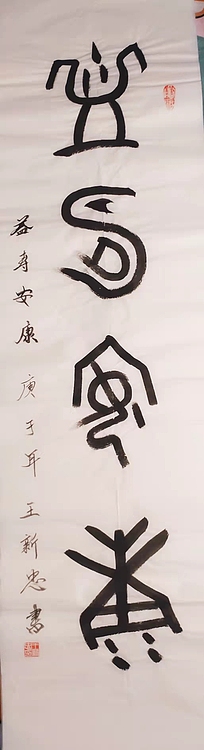 益寿安康
益寿安康 庚子年 王新忠書